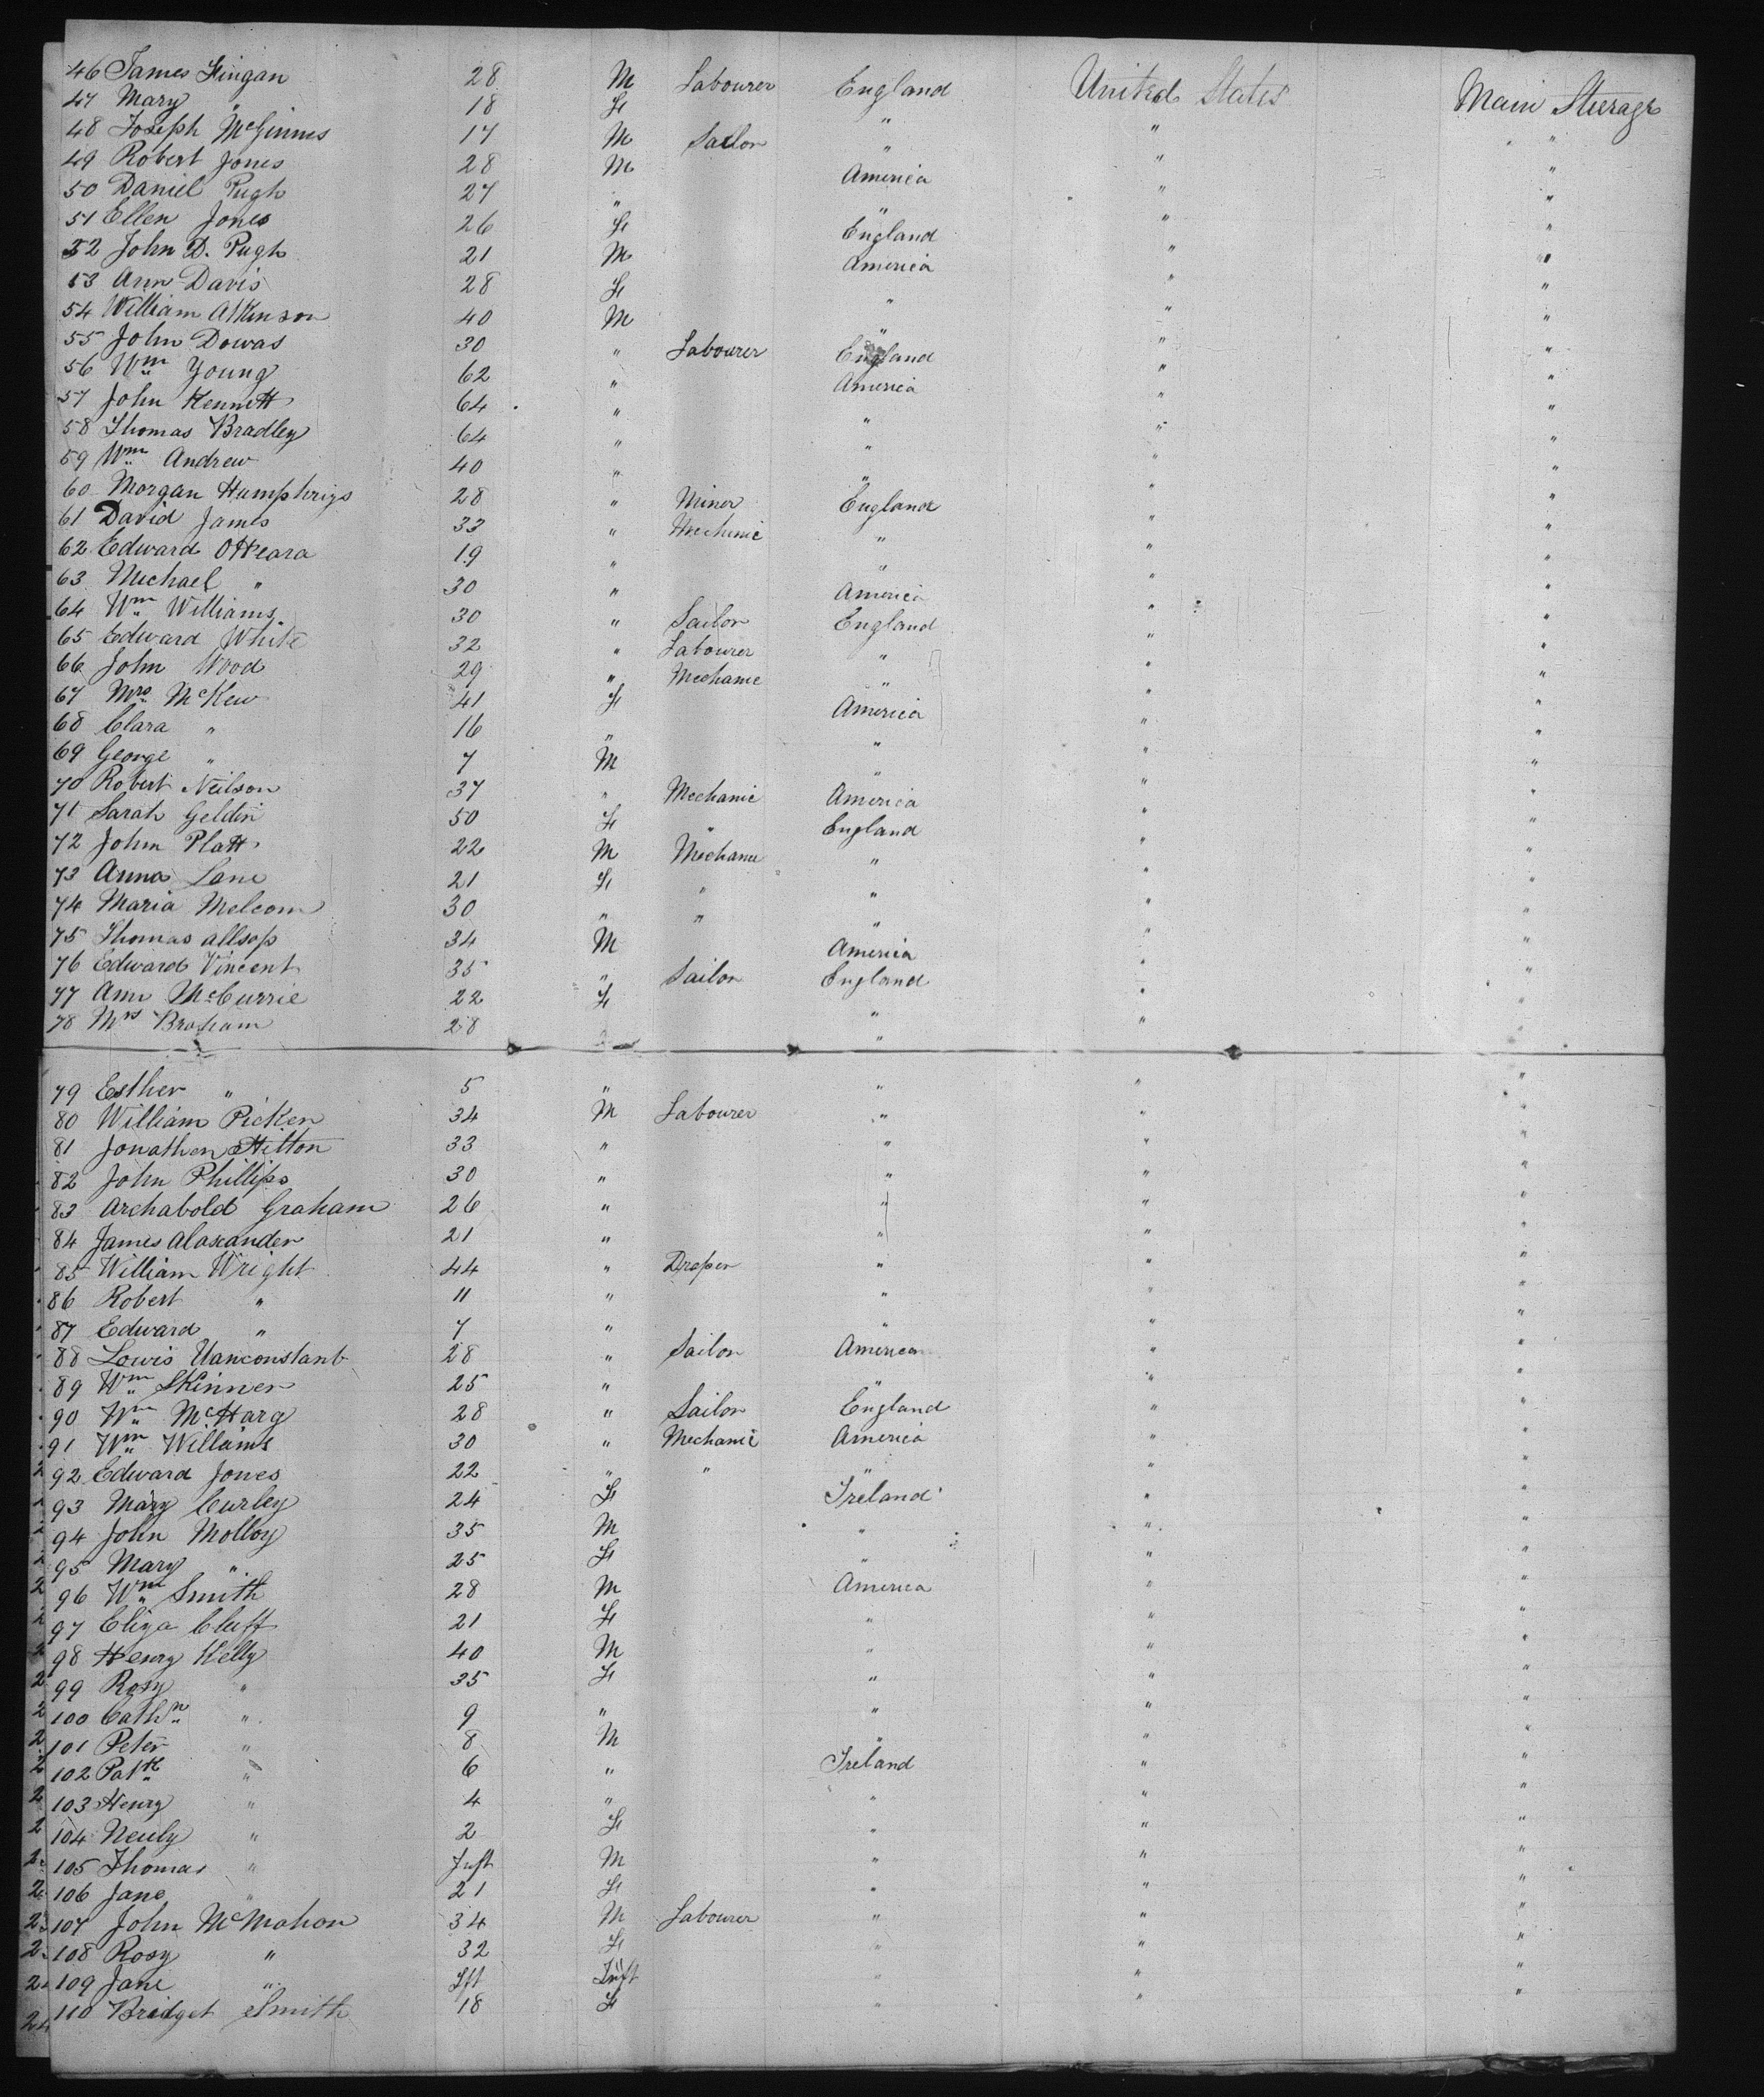 46 James Finigan 28 M Labourer England United States Main Steerage
47 Mary " 18 F " " "
48 Joseph McGinnis 17 M Sailor " " "
49 Robert Jones 28 M America " "
50 Daniel Pugh 27 " " " "
51 Ellen Jones 26 F England " "
52 John D. Pugh 21 M America " "
53 Ann Davis 28 F " " "
54 William Atkinson 40 M " " "
55 John Dowas 30 " Labourer England " "
56 Wm Young 62 " America " "
57 John Kennett 64 " " " "
58 Thomas Bradley 64 " " " "
59 Wm Andrew 40 " " " "
60 Morgan Humphrigs 28 " Miner England " "
61 David James 33 " Mechanic " " "
62 Edward OHeara 19 " " " "
63 Michael " 30 " America " "
64 Wm Williams 30 " Sailor England " "
65 Edward White 32 " Labourer " " "
66 John Wood 29 " Mechanic " " "
67 Mrs McKew 41 F America " "
68 Clara " 16 " " " "
69 George " 7 M " " "
70 Robert Neilson 37 " Mechanic America " "
71 Sarah Geldin 50 F " England " "
72 John Platt 22 M Mechanic " " "
73 Anna Lane 21 F " " " "
74 Maria Melcom 30 " " " " "
75 Thomas Allsop 34 M America " "
76 Edward Vincent 35 " Sailor England " "
77 Ann McCurrie 22 F " " "
78 Mrs Braham 28 " " "
79 Esther " 5 " " " "
80 William Picken 34 M Labourer " " "
81 Jonathen Hilton 33 " " " "
82 John Phillips 30 " " " "
83 Archabold Graham 26 " " " "
84 James Alaxander 21 " " " "
85 William Wright 44 " Draper " " "
86 Robert " 11 " " " "
87 Edward " 7 " " " "
88 Lowis Vanconstant 28 " Sailor America " "
89 Wm Skinner 25 " " " "
90 Wm McHarg 28 " Sailor England " "
91 Wm Williams 30 " Mechanic America " "
92 Edward Jones 22 " " " " "
93 Mary Curley 24 F Ireland " "
94 John Molloy 35 M " " "
95 Mary " 25 F " " "
96 Wm Smith 28 M America " "
97 Eliza Cluff 21 F " " "
98 Henry Kelly 40 M " " "
99 Rosy " 35 F " " "
100 Cathn " 9 " " " "
101 Peter " 8 M " " "
102 Patk " 6 " Ireland " "
103 Henry " 4 " " " "
104 " 2 F " " "
105 Thomas " Inft M " " "
106 Jane " 21 F " " "
107 John McMahon 34 M Labourer " " "
108 Rosy " 32 F " " "
109 Jane " Ift Inft " " "
110 Bridget Smith 18 F " " "